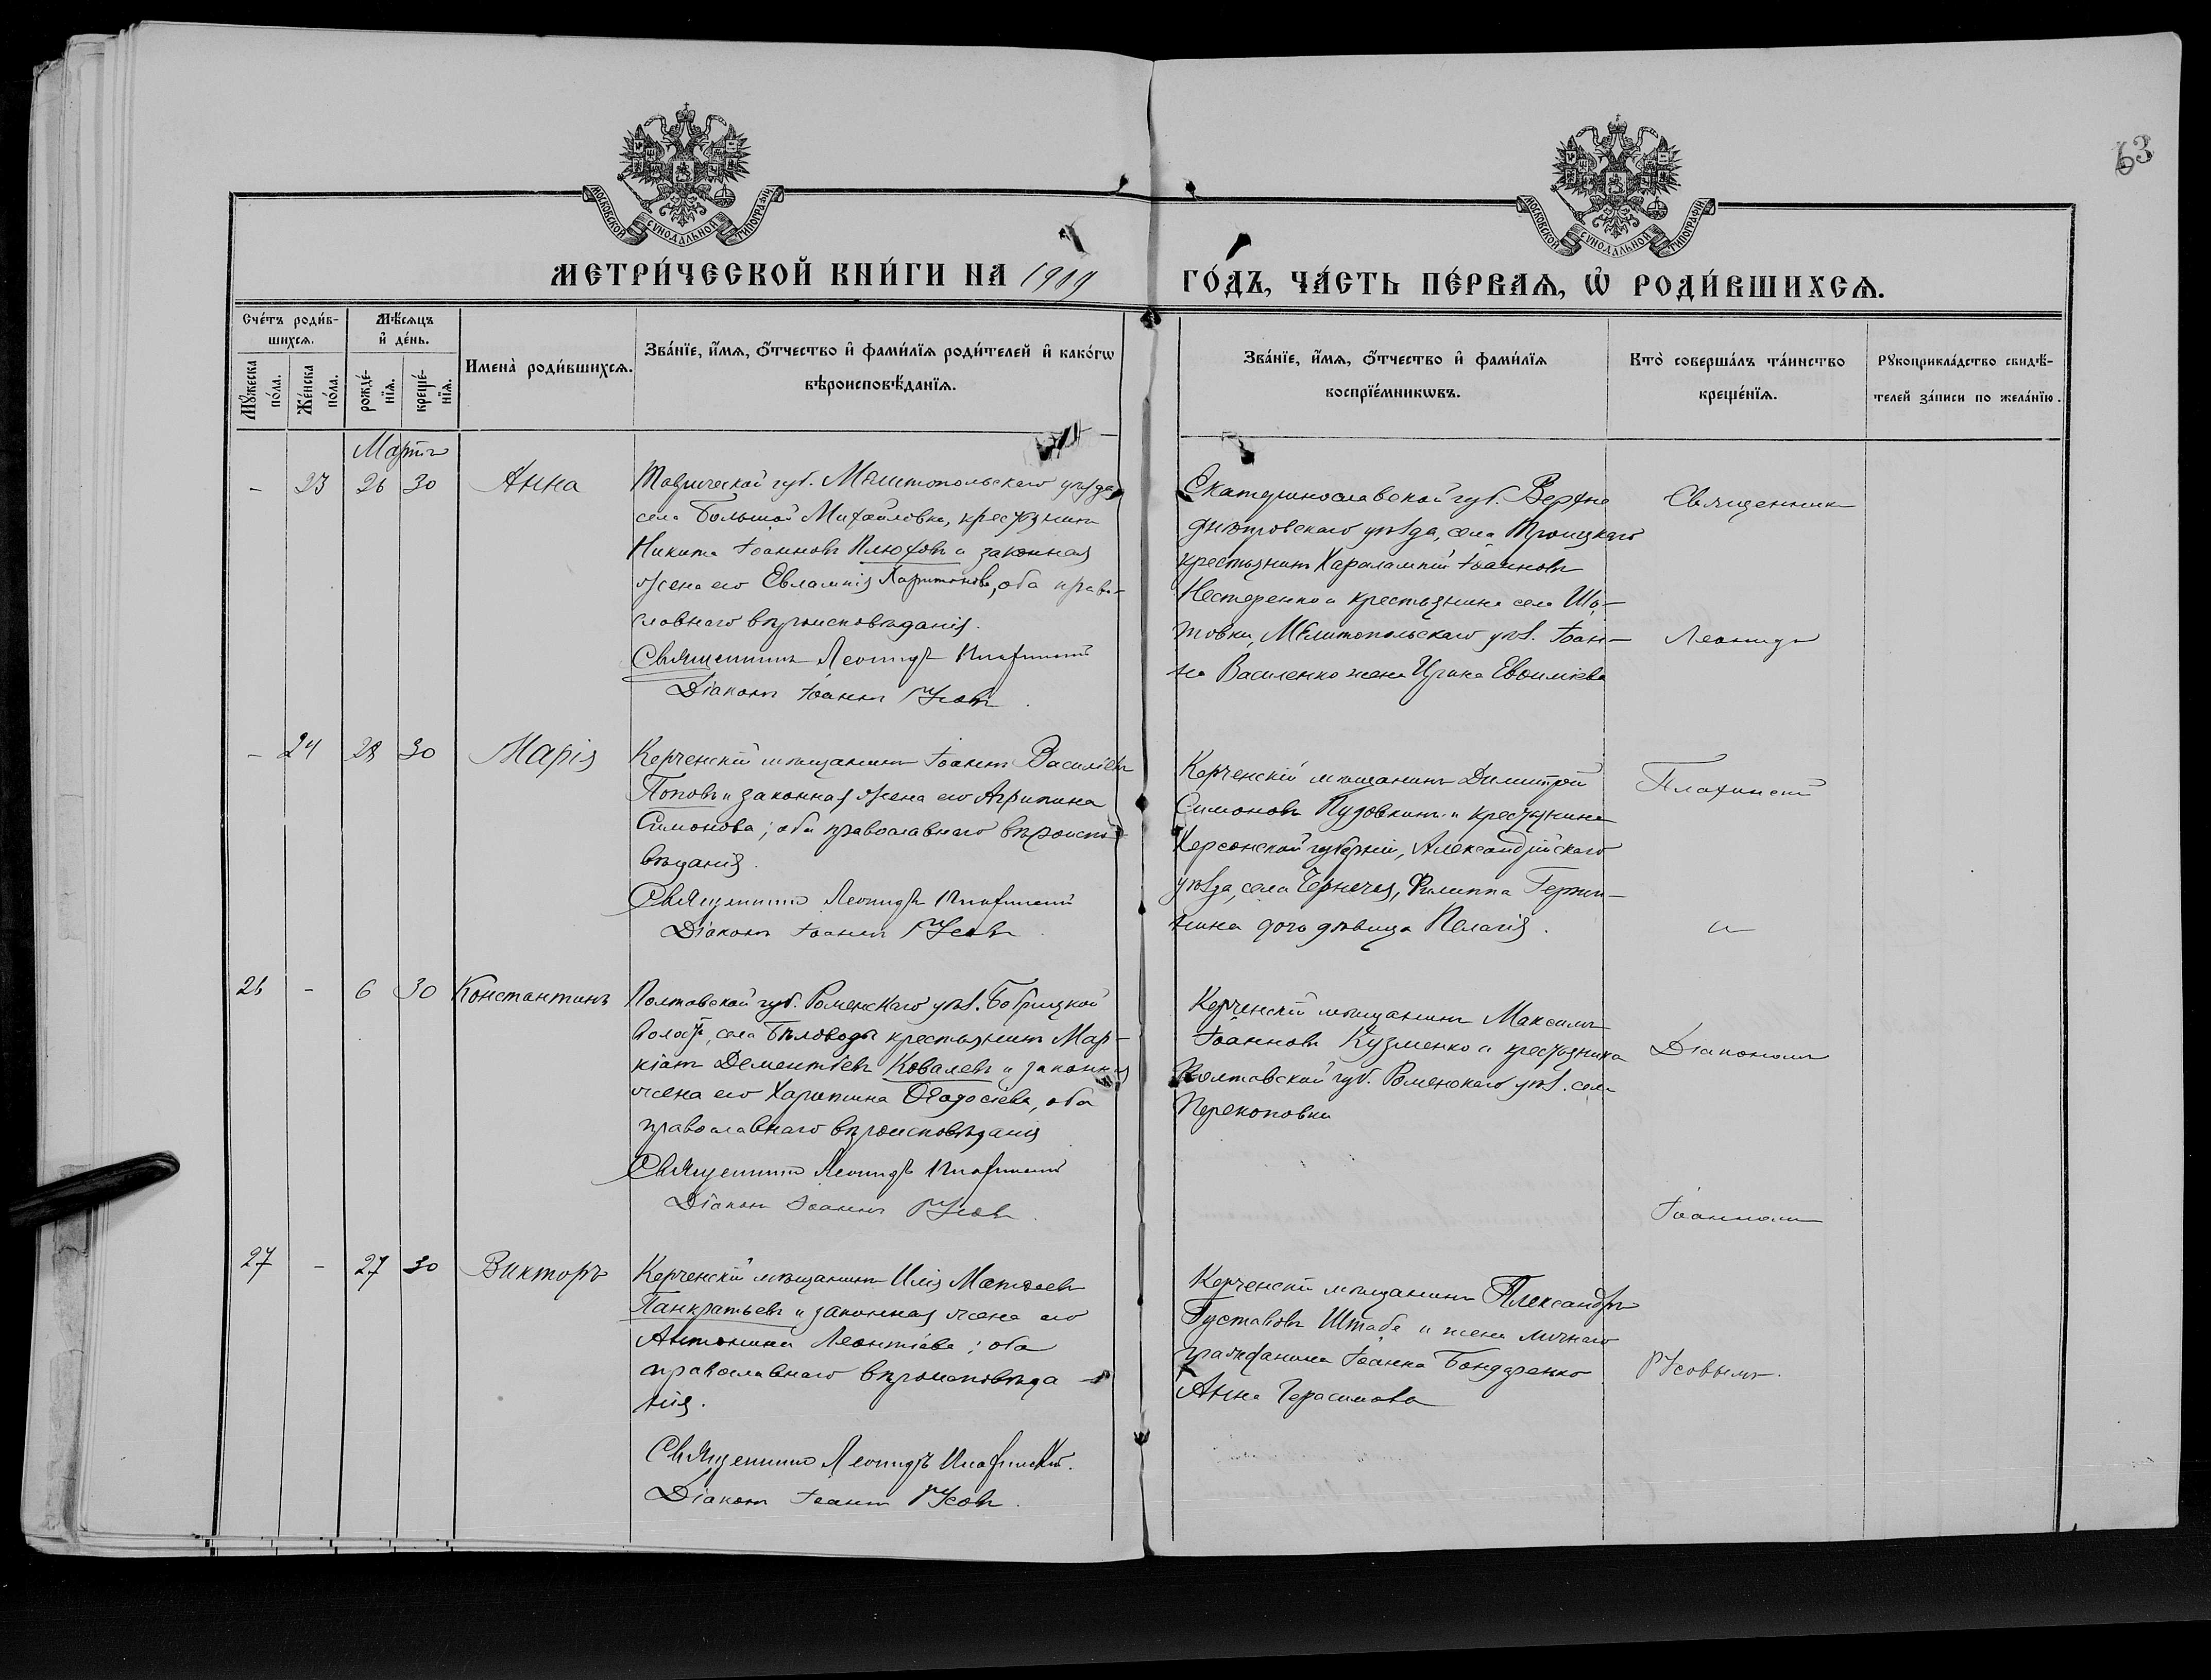 63
МОСКОВСКОЙ СУНОДАЛЬНОЙ ТИПОГРАФІИ
МОСКОВСКОЙ СУНОДАЛЬНОЙ ТИПОГРАФІИ
МЕТРИ́ЧЕСКОЙ КНИ́ГИ НА 1909 ГО́ДЪ, ЧА́СТЬ ПЕ́РВАѦ, Ѡ҆ РОДИ́ВШИХСѦ.
Сче́тъ роди́в-
шихсѧ.
Мꙋ́жеска по́ла.
Же́нска по́ла.
Мѣ́сѧцъ
и҆ де́нь.
рожде́-
нїѧ.
креще́-
нїѧ.
Имена̀ роди́вшихсѧ.
Зва́нїе, и҆́мѧ, ѻ҆́тчество и҆ фами́лїѧ роди́телей и҆ како́гѡ
вѣроисповѣ́данїѧ.
Зва́нїе, и҆́мѧ, ѻ҆́тчество и҆ фами́лїѧ
воспрїе́мникѡвъ.
Кто̀ соверша́лъ та́инство
креще́нїѧ.
Рꙋкоприкла́дство свидѣ́-
телей за́писи по жела́нїю.
Мартъ
– 23 26 30 Анна
Таврической губ. Мелитопольскаго уѣзда,
села Большой Михайловки, крестьянинъ
Никита Іоанновъ Плюховъ и законная
жена его Евлампія Харитонова, оба право-
славнаго вѣроисповѣданія.
Священникъ Леонидъ
Діаконъ Іоаннъ Русовъ.
Екатеринославской губ. Верхне
днѣпровскаго уѣзда, села Троицкаго
крестьянинъ Харалампій Іоанновъ
Нестеренко и крестьянина села
Мелитопольскаго уѣз. Іоан-
на Василенко жена Ирина Евѳиміева
Священникъ
Леонидъ
– 24 28 30 Марія
Керченскій мѣщанинъ Іоаннъ Василіевъ
Поповъ и законная жена его Агрипина
Симонова; оба православнаго вѣроиспо
вѣданія.
Священникъ Леонидъ
Діаконъ Іоаннъ Русовъ.
Керченскій мѣщанинъ Димитрій
Симоновъ Пудовкинъ и крестьянина
Херсонской губерніи, Александрійскаго
уѣзда, села Чернечья, Филиппа
дочь дѣвица Пелагія.
и
26 – 6 30 Константинъ
Полтавской губ. Роменскаго уѣз. Бобрицкой
волости, села Бѣловоды крестьянинъ Мар-
кіанъ Дементіевъ Ковалевъ и законная
жена его Харитина Ѳеодосіева, оба
православнаго вѣроисповѣданія
Священникъ Леонидъ
Діаконъ Іоаннъ Русовъ.
Керченскій мѣщанинъ Максимъ
Іоанновъ Кузменко и крестьянка
Полтавской губ. Роменскаго уѣз. села
Перекоповки
Діакономъ
Іоанномъ
27 – 27 30 Викторъ
Керченскій мѣщанинъ Илія Матѳеевъ
Панкратьевъ и законная жена его
Антонина Леонтіева; оба
православнаго вѣроисповѣда
нія.
Священникъ Леонидъ
Діаконъ Іоаннъ Русовъ.
Керченскій мѣщанинъ Александръ
Густавовъ Штабе и жена личнаго
гражданина Іоанна Бондаренко
Анна Герасимова
Русовымъ.